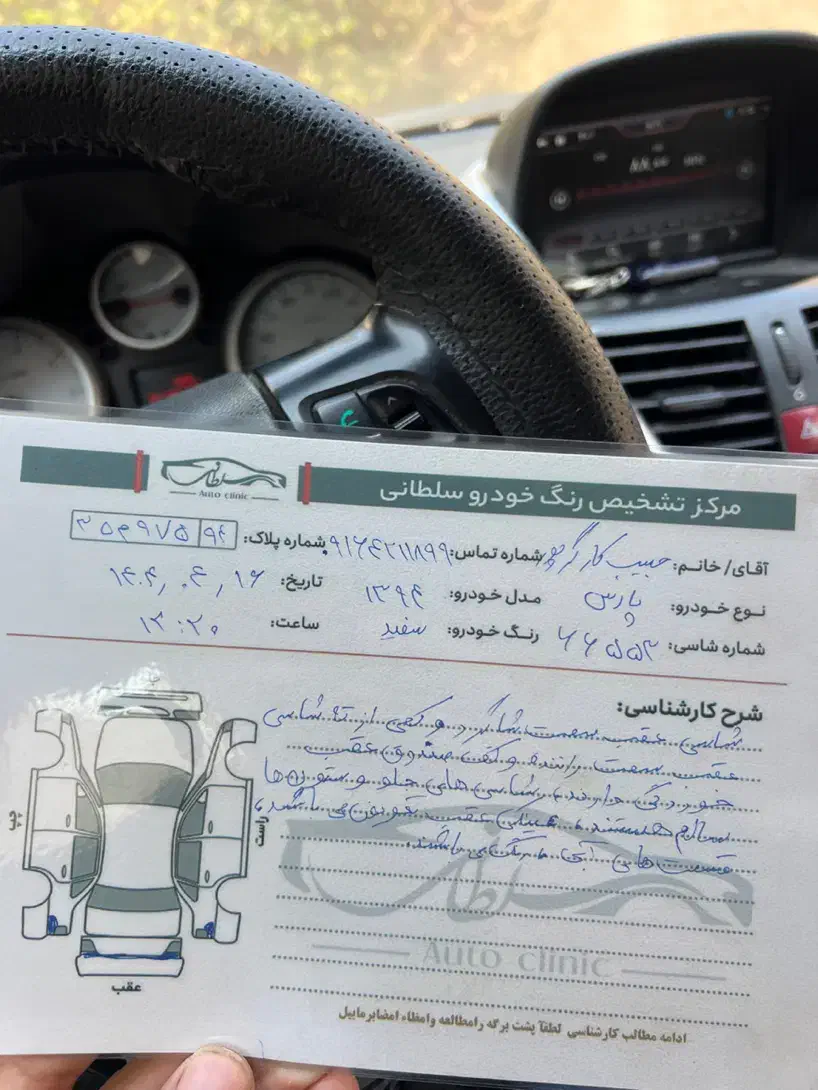 مرکز تشخیص رنگ خودرو سلطانی
سلطانی
Auto clinic
آقای/ خانم: حبیب کارگر شماره تماس: ۰۹۱۶۴۲۱۱۸۹۹ شماره پلاک: ۹۴
نوع خودرو: پارس مدل خودرو: ۱۳۹۴ تاریخ: ۱۴۰۴/۰۴/۱۶
شماره شاسی: ۶۶۵۵۲ رنگ خودرو: سفید ساعت: ۱۳:۲۰
شرح کارشناسی:
شاسی عقب سمت شاگرد و کمی از ته شاسی
عقب سمت راننده و کف صندوق عقب
خوردگی دارند، شاسی های جلو و ستون ها
سالم هستند، سینی عقب تعویض می باشد،
قسمت های آبی، رنگ می باشند.
راست
عقب
سلطانی
Auto clinic
ادامه مطالب کارشناسی لطفاً پشت برگه را مطالعه و امضاء امضا بر مابیل